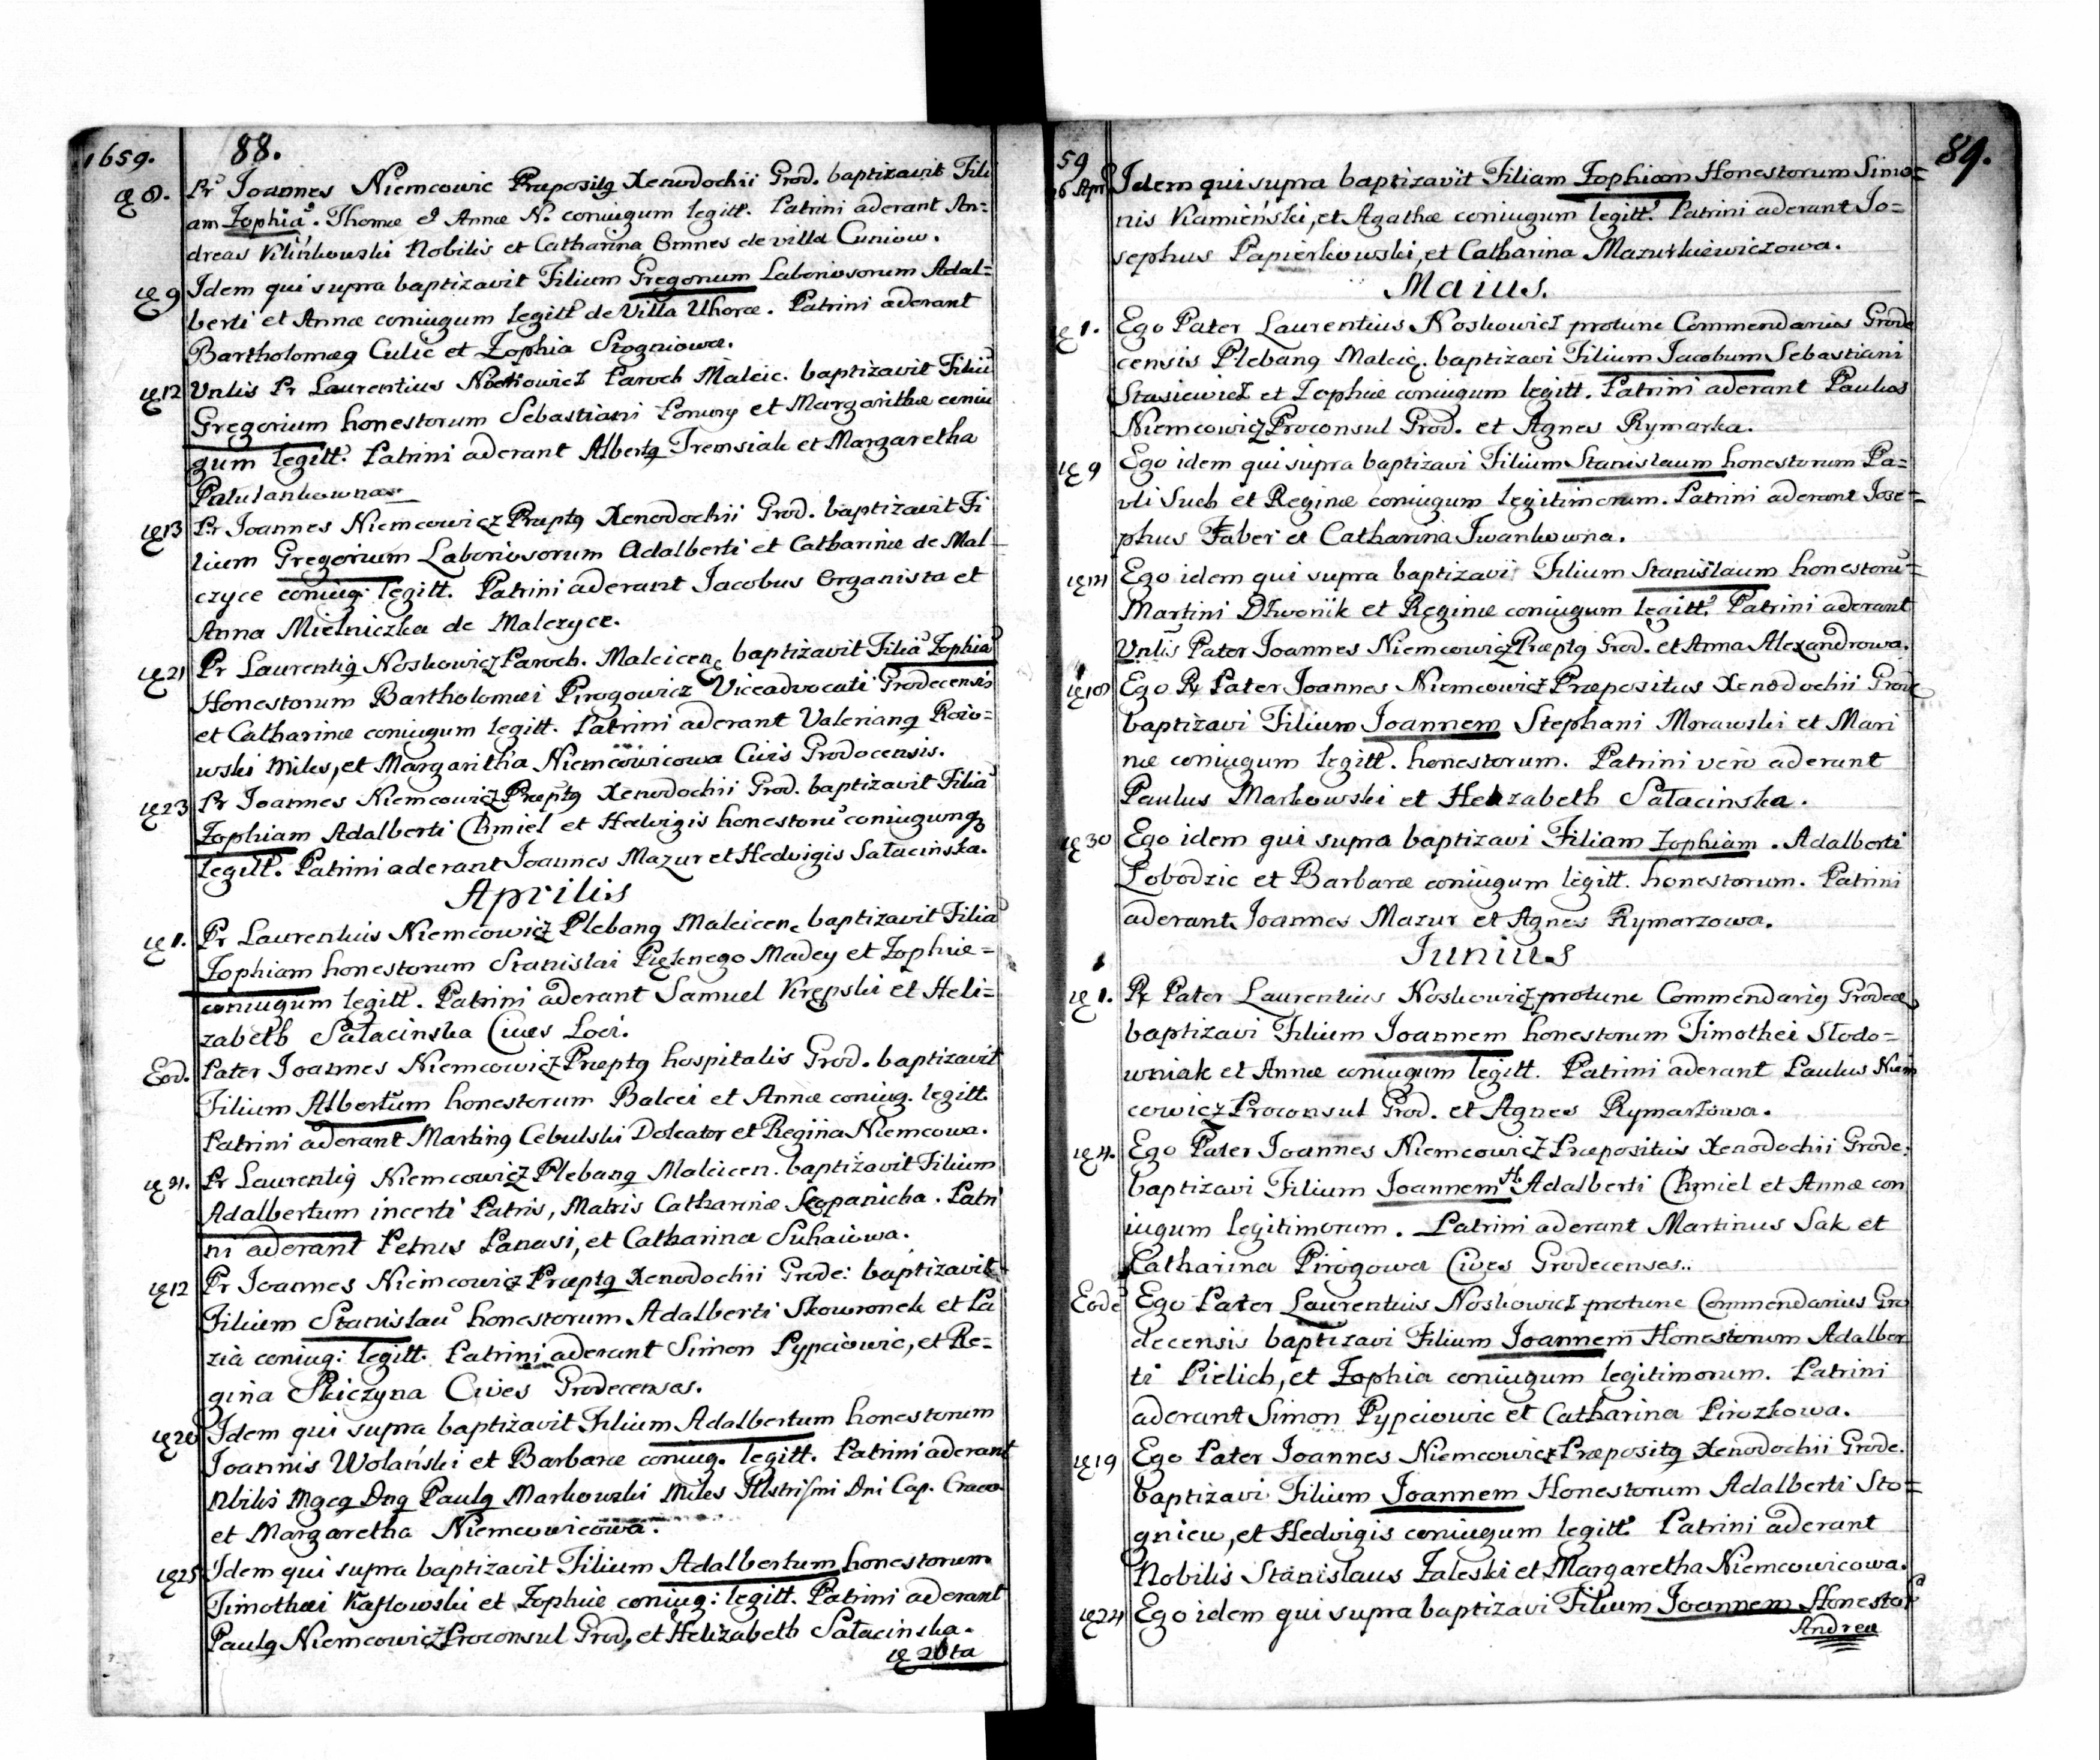 1659. 88.
8. Pr Joannes Niemcowic Præposity Xenodochii Grod. baptizavit Fili
am Zophiā. Thomæ et Annæ N. coniugum legitt. Patrini aderant An=
dreas Klinkowski Nobilis et Catharina Omnes de villa Cuniow.
9 Idem qui supra baptizavit Filium Gregorium Laboriosorum Adal=
berti et Annæ coniugum legitt de Villa Uhorce. Patrini aderant
Bartholomæy Culic et Zophia Stogniowa.
12 Vnlis Pr Laurentius Noskowicz Paroch Malcic. baptizavit Filiū
Gregorium honestorum Sebastiani Ponury et Margarithæ coniu
gum legitt. Patrini aderant Alberty Tremsiak et Margaretha
13 Pr Joannes Niemcowicz Præpty Xenodochii Grod. baptizavit Fi
lium Gregorium Laboriosorum Adalberti et Catharinæ de Mal=
czyce coniug: legitt. Patrini aderant Jacobus Organista et
Anna Mielniczka de Malczyce.
21 Pr Laurentiy Noskowicz Paroch. Malcicen. baptizavit Filiā Zophiā
Honestorum Bartholomæi Pirogowicz Viceadvocati Grodecensis
et Catharinæ coniugum legitt. Patrini aderant Valeriany Roio=
wski Miles, et Margaritha Niemcowicowa Civis Grodocensis.
23 Pr Joannes Niemcowicz Præpty Xenodochii Grod. baptizavit Filiā
Zophiam Adalberti Chmiel et Hedvigis honestorū coniugum
legitt. Patrini aderant Joannes Mazur et Hedvigis Sałacinska.
Aprilis
1. Pr Laurentius Niemcowicz Plebany Malcicen. baptizavit Filiā
Zophiam honestorum Stanislai Pięknego Madey et Zophiæ=
coniugum legitt. Patrini aderant Samuel Krepski et Heli=
zabeth Sałacinska Cives Loci.
Eod. Pater Joannes Niemcowicz Præpty hospitalis Grod. baptizavit
Filium Albertum honestorum Balcei et Annæ coniug. legitt.
Patrini aderant Martiny Cebulski Doleator et Regina Niemcowa.
Pr Laurentiy Niemcowicz Plebany Malcicen. baptizavit Filium
Adalbertum incerti Patris, Matris Catharinæ Stopanicha. Patri
ni aderant Petrus Panasi, et Catharina Suhaiowa.
12 Pr Joannes Niemcowicz Præpty Xenodochii Grode: baptizavit
Filium Stanislaū honestorum Adalberti Skowronek et Pa
zia coniug: legitt. Patrini aderant Simon Pypciowic, et Re=
gina Skiczyna Cives Grodecenses.
20 Idem qui supra baptizavit Filium Adalbertum honestorum
Joannis Wolański et Barbaræ coniug. legitt. Patrini aderant
Nbilis Mgcy Dny Pauly Markowski Miles Illstrissmi Dni Cap. Craco
et Margaretha Niemcowicowa.
25 Idem qui supra baptizavit Filium Adalbertum honestorum
Timothæi Kasłowski et Zophiæ coniug: legitt. Patrini aderant
Pauly Niemcowicz Proconsul Grod. et Helizabeth Sałacinska.
26ta
59 89.
26 Apr Idem qui supra baptizavit Filiam Zophiam Honestorum Simo=
nis Kamieński, et Agathæ coniugum legitt. Patrini aderant Jo=
sephus Papierkowski, et Catharina Mazurkiewiczowa.
Maius.
1. Ego Pater Laurentius Noskowicz protunc Commendarius Grode
censis Plebany Malcic. baptizavi Filium Jacobum Sebastiani
Stasiewicz et Zophiæ coniugum legitt. Patrini aderant Paulus
Niemcowicz Proconsul Grod. et Agnes Rymarka.
9 Ego idem qui supra baptizavi Filium Stanislaum honestorum Pa=
vli Such et Reginæ coniugum legitimorum. Patrini aderant Jose=
phus Faber et Catharina Iwankowna.
Ego idem qui supra baptizavi Filium Stanislaum honestorū=
Martini Dzwonik et Reginæ coniugum legitt. Patrini aderant
Vnlis Pater Joannes Niemcowicz Præpty Grod. et Anna Alexandrowa.
18 Ego Pater Joannes Niemcowicz Præpositus Xenodochii Grode
baptizavi Filium Joannem Stephani Morawski et Mari
næ coniugum legitt. honestorum. Patrini vero aderant
Paulus Markowski et Helzabeth Sałacinska.
30 Ego idem qui supra baptizavi Filiam Zophiam. Adalberti
Łobodzic et Barbaræ coniugum legitt. honestorum. Patrini
aderant Joannes Mazur et Agnes Rymarzowa.
Junius
1. Pater Laurentius Noskowicz protunc Commendariy Grodec
baptizavi Filium Joannem honestorum Timothei Słodo=
wniak et Annæ coniugum legitt. Patrini aderant Paulus Niem
cowicz Proconsul Grod. et Agnes Rymarzowa.
4. Ego Pater Joannes Niemcowicz Præpositus Xenodochii Grode:
baptizavi Filium Joannem H. Adalberti Chmiel et Annæ con
iugum legitimorum. Patrini aderant Martinus Sak et
Catharina Pirogowa Cives Grodecenses..
Eodē Ego Pater Laurentius Noskowicz protunc Commendarius Gro
decensis baptizavi Filium Joannem Honestorum Adalber
ti Pielich, et Zophia coniugum legitimorum. Patrini
aderant Simon Pypciowic et Catharina Pirozkowa.
19 Ego Pater Joannes Niemcowicz Præposity Xenodochii Grode.
baptizavi Filium Joannem Honestorum Adalberti Sto=
gniew, et Hedvigis coniugum legitt. Patrini aderant
Nobilis Stanislaus Zaleski et Margaretha Niemcowicowa.
24 Ego idem qui supra baptizavi Filium Joannem Honestor
Andreæ